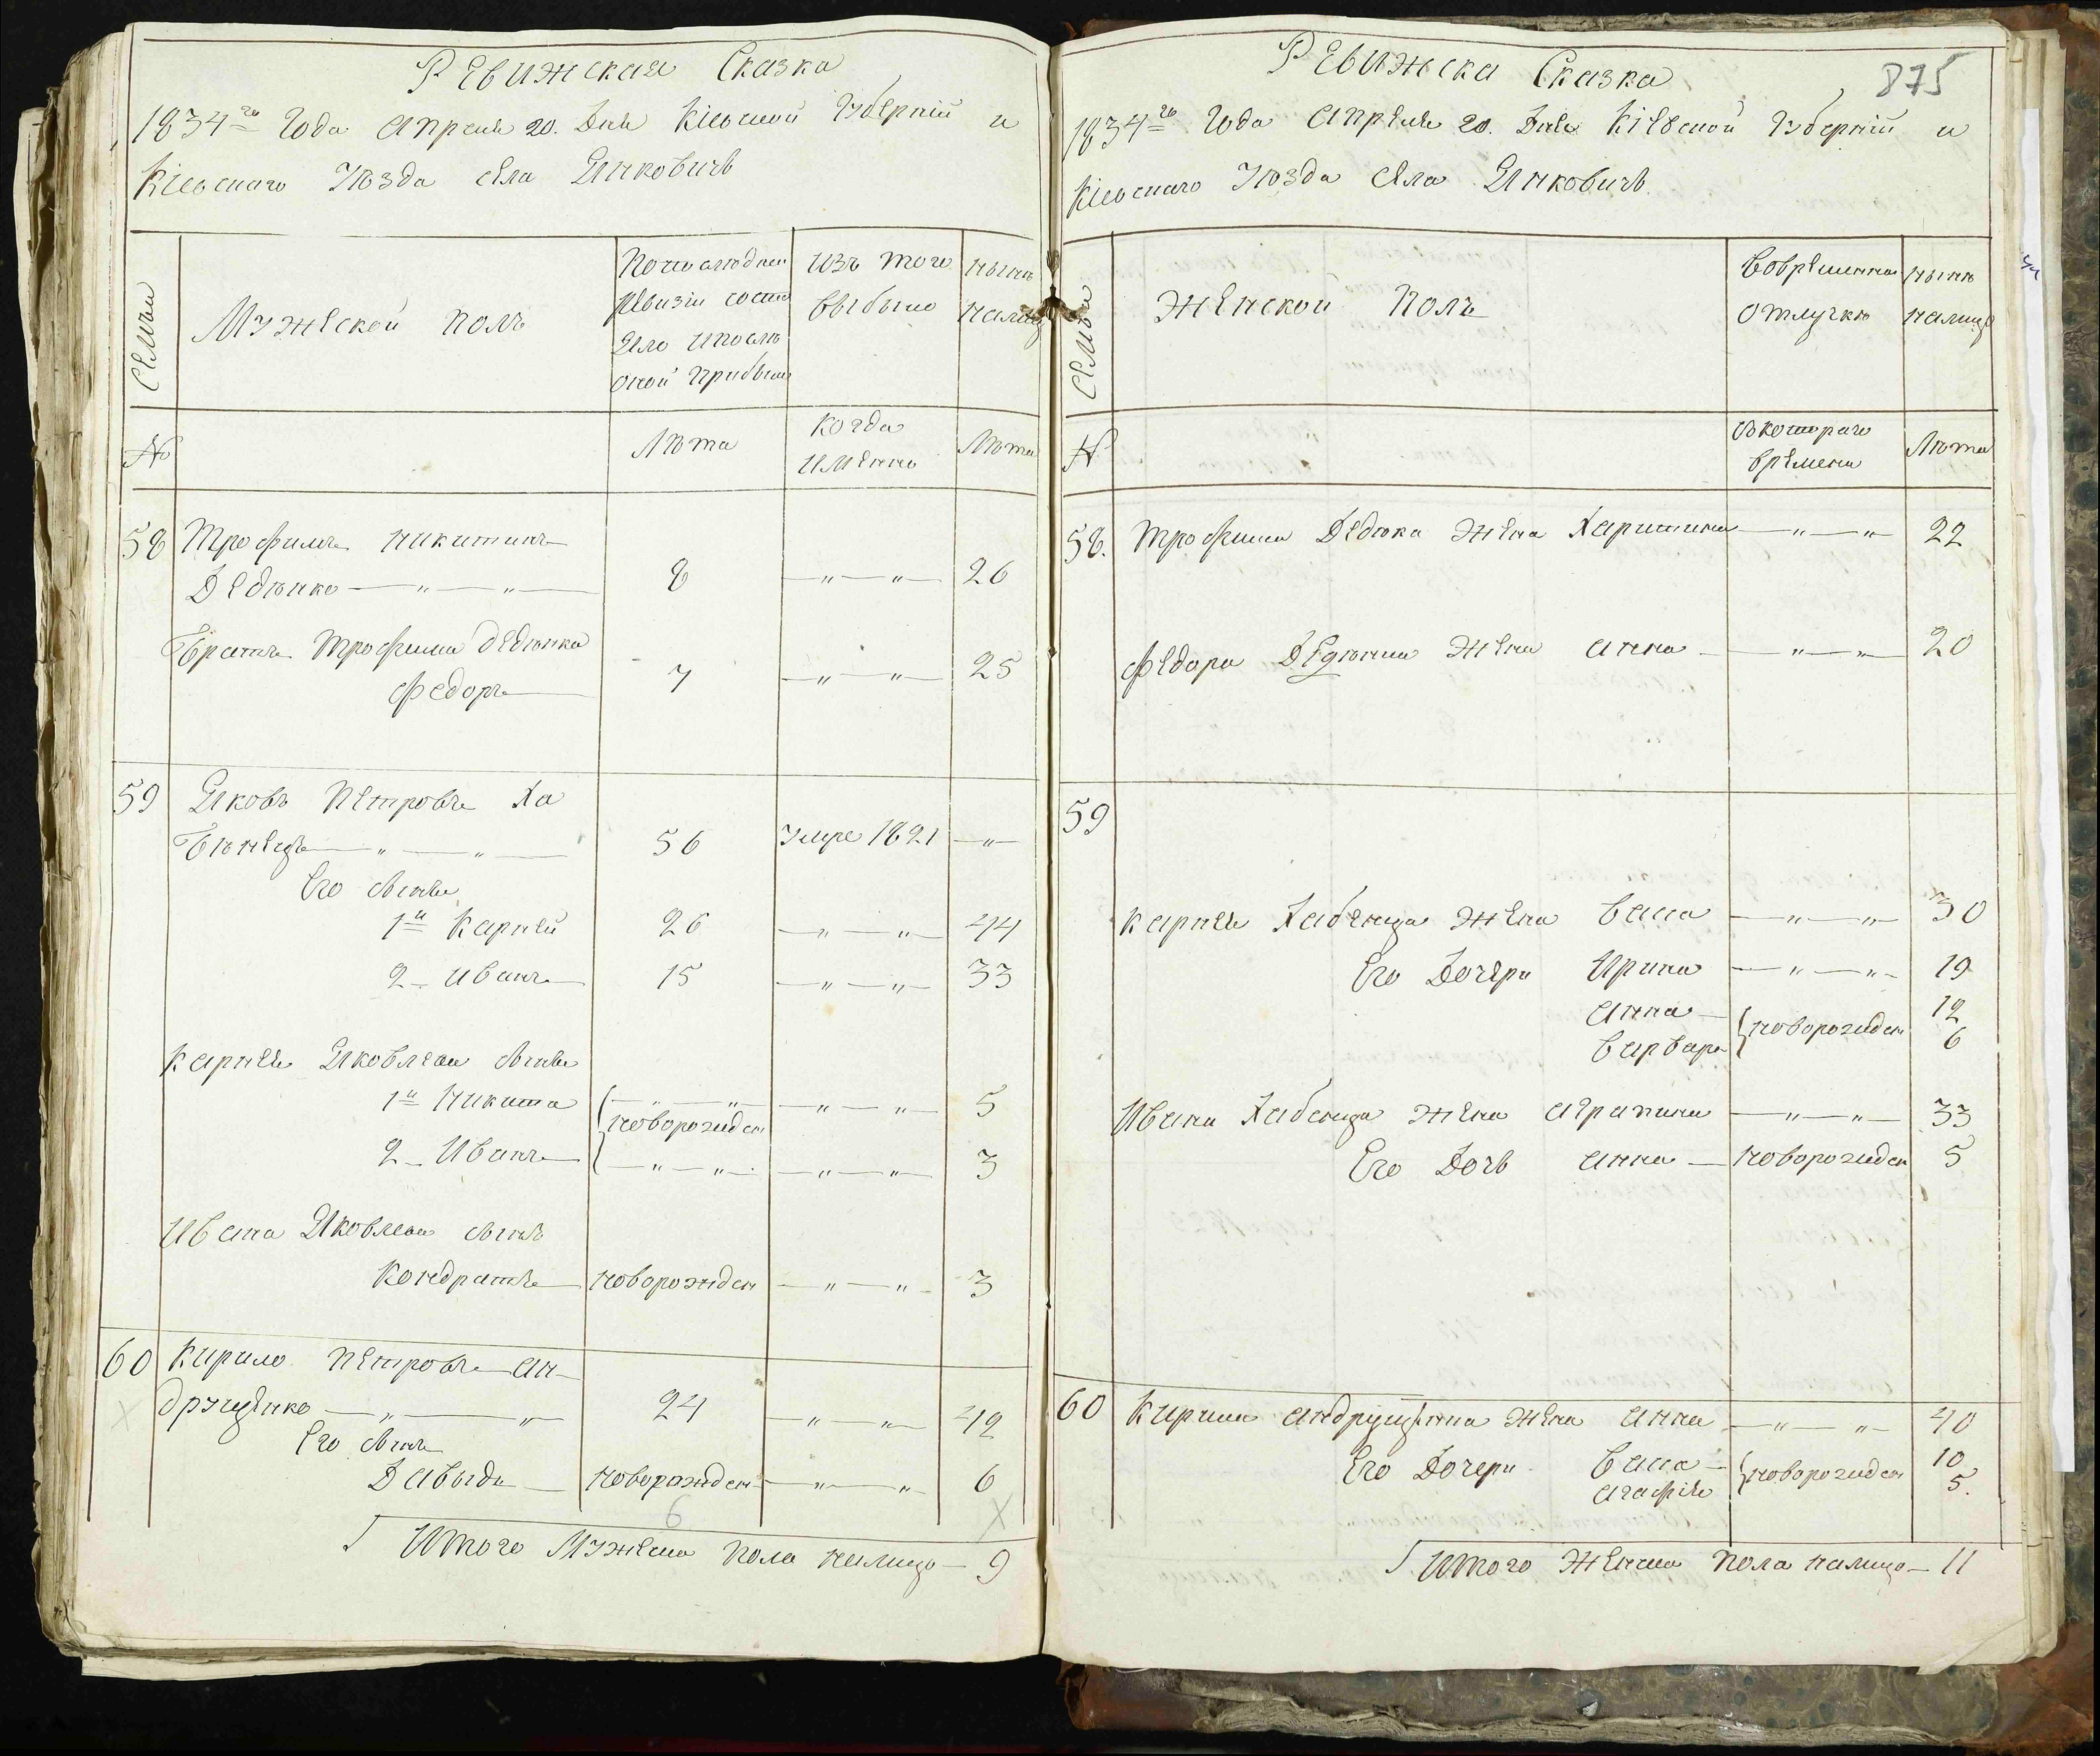 Ревижская Сказка
1834го Года Апреля 20. Дня Кіевской Губерніи и
Кіевскаго Уѣзда села Янковичь
Семьи
Мужеской полъ
По последней
Ревизіи состо
яло и после
оной прибыло
Изъ того
выбыло
ныне
налицо
№
Лѣта
Когда
имянно
Лѣта
58 Трофимъ Никитинъ
Дедюнко — „ — „ — 8 — „ — „ — 26
Братъ Трофима Дедюнка
Федоръ — 7 — „ — „ — 25
59 Яковъ Петровъ Ха
бенецъ — „ — „ — 56 Умре 1821 — „ —
Его сыны
1й Карпей 26 — „ — „ — 44
2– Иванъ — 15 — „ — „ — 33
Карпея Яковлева сыны
1й Никита — „ — „ — — „ — „ — 5
новорожден
2– Иванъ — — „ — „ — — „ — „ — 3
Ивана Яковлева сынъ
Кондратъ — новорожден — „ — „ — 3
60 Кирило Петровъ Ан–
друщенко — „ — „ 24 — „ — „ — 42
Его сынъ
Давыдъ — новорожден — „ — „ — 6
6
Итого Мужеска пола налицо — 9
875
Ревижска Сказка
1834го Года Апреля 20. Дня Кіевской Губерніи и
Кіевскаго Уѣзда села Янковичь
Семьи
Женской Полъ
Вовременной
отлучке
ныне
налицо
№
съ котораго
времени
Лѣта
58. Трофима Дедюка жена Харитина — „ — „ — 22
Федора Дедюнка жена Анна — „ — „ — 20
59
Карпея Хабенца жена Васса — „ — „ — 30
Его Дочери Ирина — „ — „ — 19
Анна — 12
новорожден
Варвара 6
Ивана Хабенца жена Агрипина — „ — „ — 33
Его Дочь Анна — новорожден 5
60 Кирила Андрущенка жена Анна — „ — „ — 40
Его Дочери Васса — 10
новорожден
Агафія 5.
Итого Женска пола налицо — 11